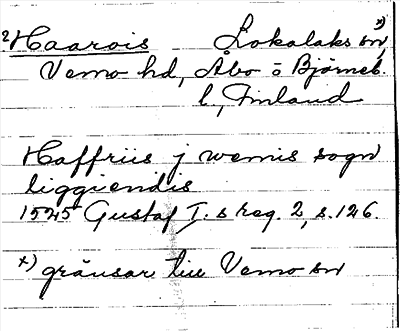 2 Haarois Lokalaks sn x)
Vemo hd, Åbo o Björneb.
l., Finland
Haffriis j wemis sogn
liggiendis
1545 Gustaf I. s reg. 2, s. 126.
x) gränsar till Vemo sn